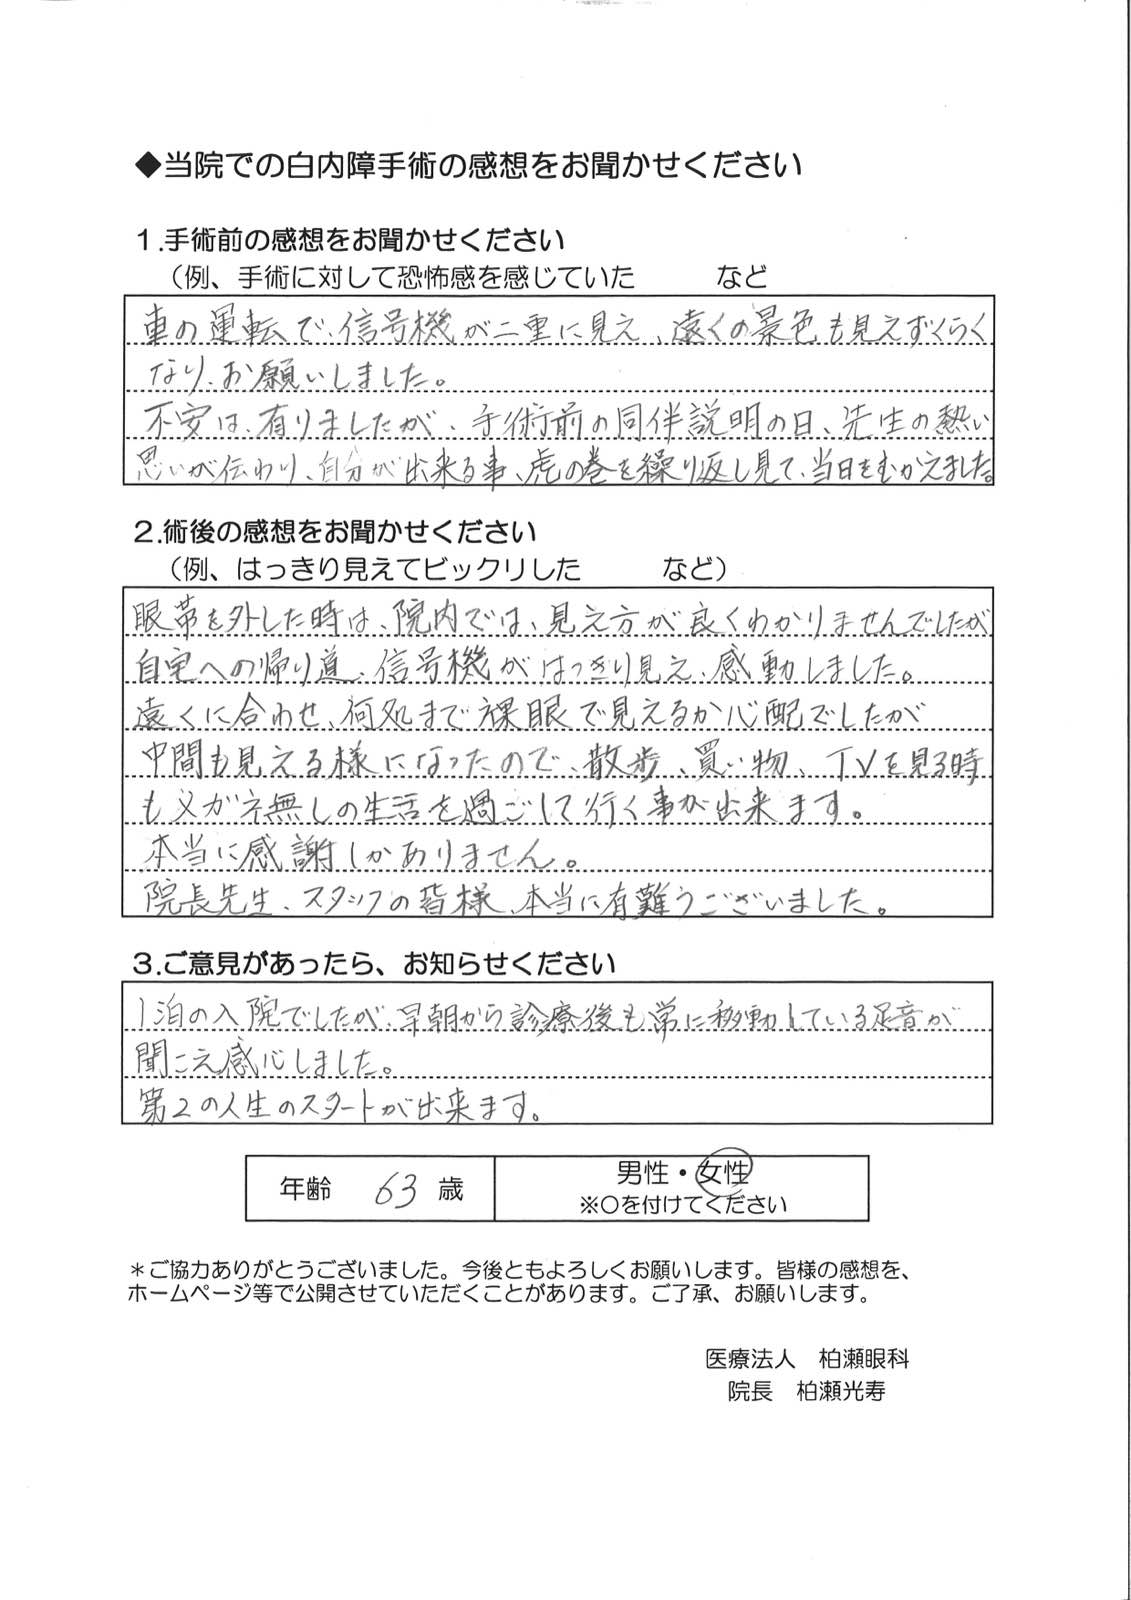 ◆当院での白内障手術の感想をお聞かせください
１.手術前の感想をお聞かせください
（例、手術に対して恐怖感を感じていた　　　など
車の運転で、信号機が二重に見え、遠くの景色も見えずくらく
なり、お願いしました。
不安は、有りましたが、手術前の同伴説明の日、先生の熱い
思いが伝わり、自分が出来る事、虎の巻を繰り返し見て、当日をむかえました。
２.術後の感想をお聞かせください
（例、はっきり見えてビックリした　　　など）
眼帯を外した時は、院内では、見え方が良くわかりませんでしたが
自宅への帰り道、信号機がはっきり見え、感動しました。
遠くに合わせ、何処まで裸眼で見えるか心配でしたが
中間も見える様になったので、散歩、買い物、TVを見る時
もメガネ無しの生活を過ごして行く事が出来ます。
本当に感謝しかありません。
院長先生、スタッフの皆様、本当に有難うございました。
３.ご意見があったら、お知らせください
1泊の入院でしたが、早朝から診療後も常に移動している足音が
聞こえ感心しました。
第2の人生のスタートが出来ます。
年齢　63　歳
男性・女性
※○を付けてください
＊ご協力ありがとうございました。今後ともよろしくお願いします。皆様の感想を、
ホームページ等で公開させていただくことがあります。ご了承、お願いします。
医療法人　柏瀬眼科
院長　柏瀬光寿